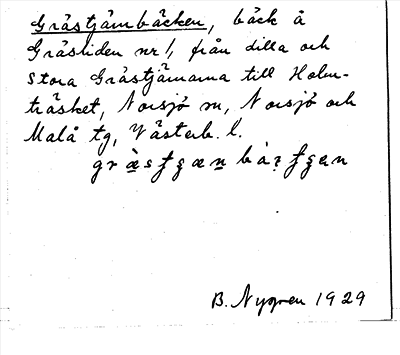 Grästjärnbäcken, bäck å
Gräsliden nr 1, från Lilla och
Stora Grästjärnarna till Holm-
träsket, Norsjö sn, Norsjö och
Malå tg, Västerb. l.
B. Nygren 1929